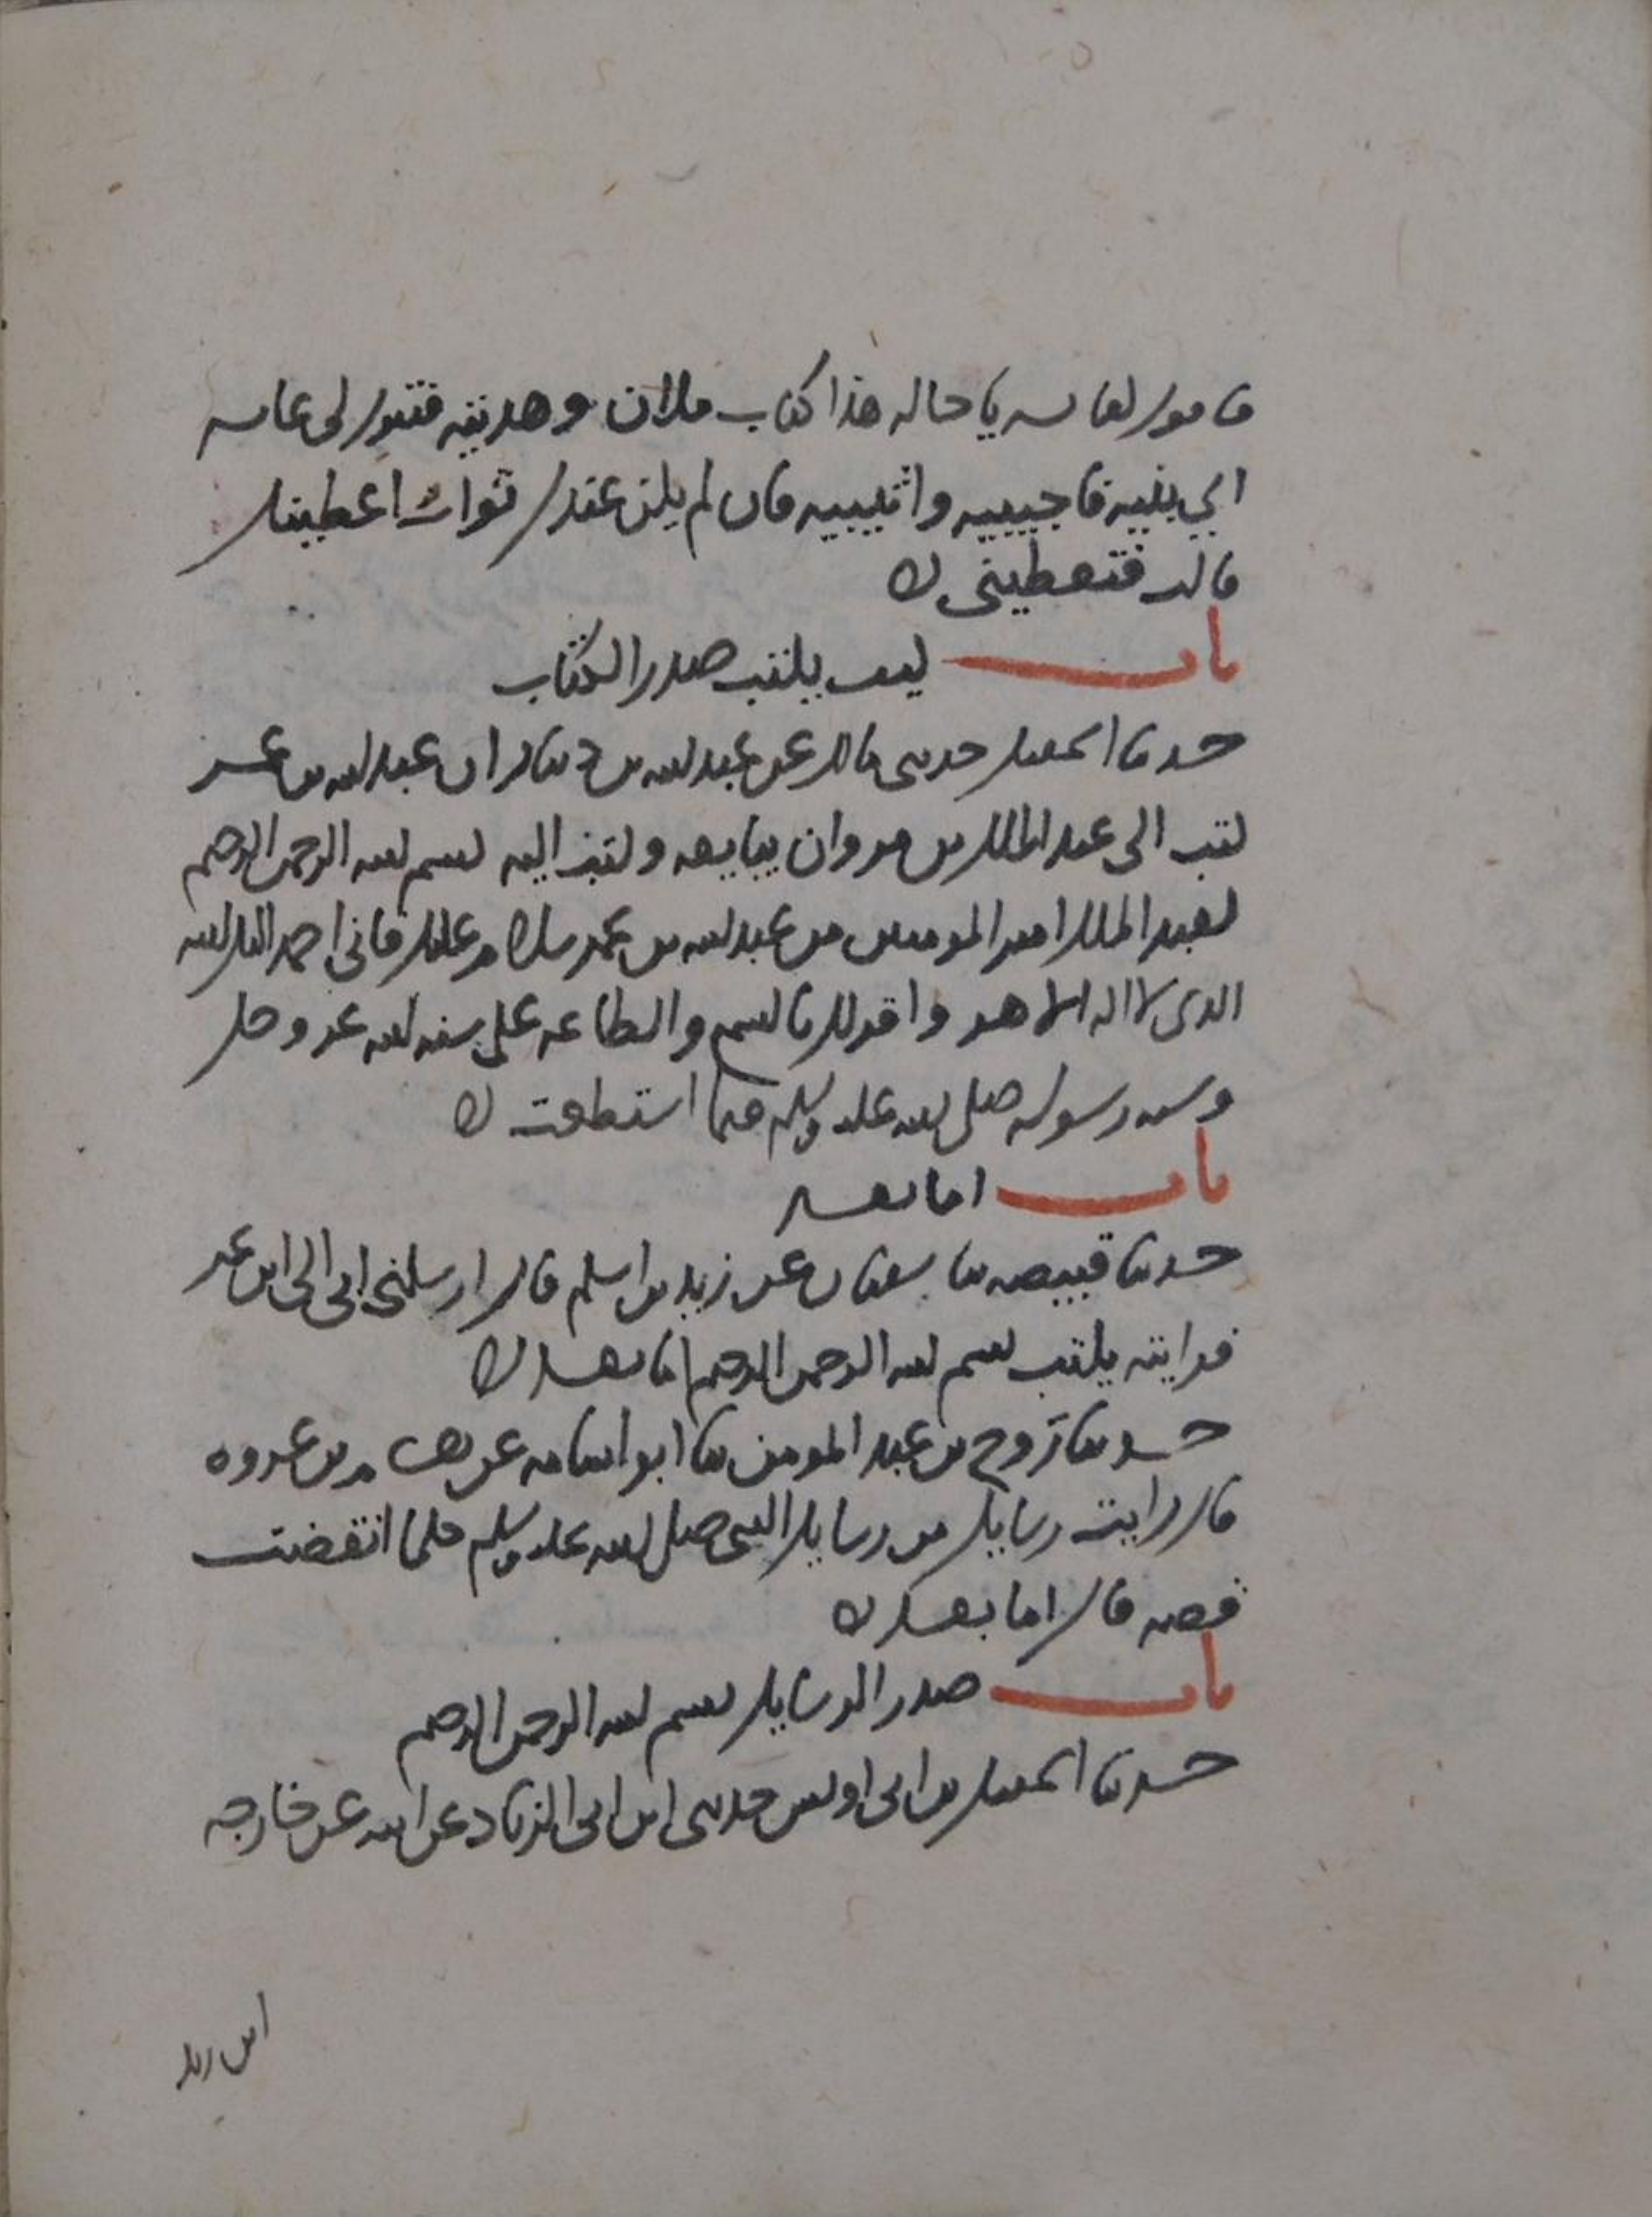 فاقول لعائشة يا خالة هذا كتاب فلان وهديته فتقول لي عائشة
اي بنية فاجيبيه واثيبيه فان لم يكن عندك ثواب اعطيتك
قالت فتعطيني
باب كيف يكتب صدر الكتاب
حدثنا اسمعيل حدثني مالك عن عبد الله بن دينار ان عبد الله بن عمر
كتب الى عبد الملك بن مروان يبايعه وكتب اليه بسم الله الرحمن الرحيم
لعبد الملك امير المومنين من عبد الله بن عمر سلام عليك فاني احمد اليك الله
الذي لا اله الا هو واقر لك بالسمع والطاعة على سنة الله عز وجل
وسنة رسوله صلى الله عليه وسلم فيما استطعت
باب اما بعد
حدثنا قبيصة ثنا سفيان عن زيد بن اسلم قال ارسلني ابي الى ابن عمر
فرايته يكتب بسم الله الرحمن الرحيم اما بعد
حدثنا روح بن عبد المومن ثنا ابو اسامة عن هشام بن عروة
قال رايت رسايل من رسايل النبي صلى الله عليه وسلم كلما انقضت
قصة قال اما بعد
باب صدر الرسايل بسم الله الرحمن الرحيم
حدثنا اسمعيل بن ابي اويس حدثني ابن ابي الزناد عن ابيه عن خارجة
ابن زيد